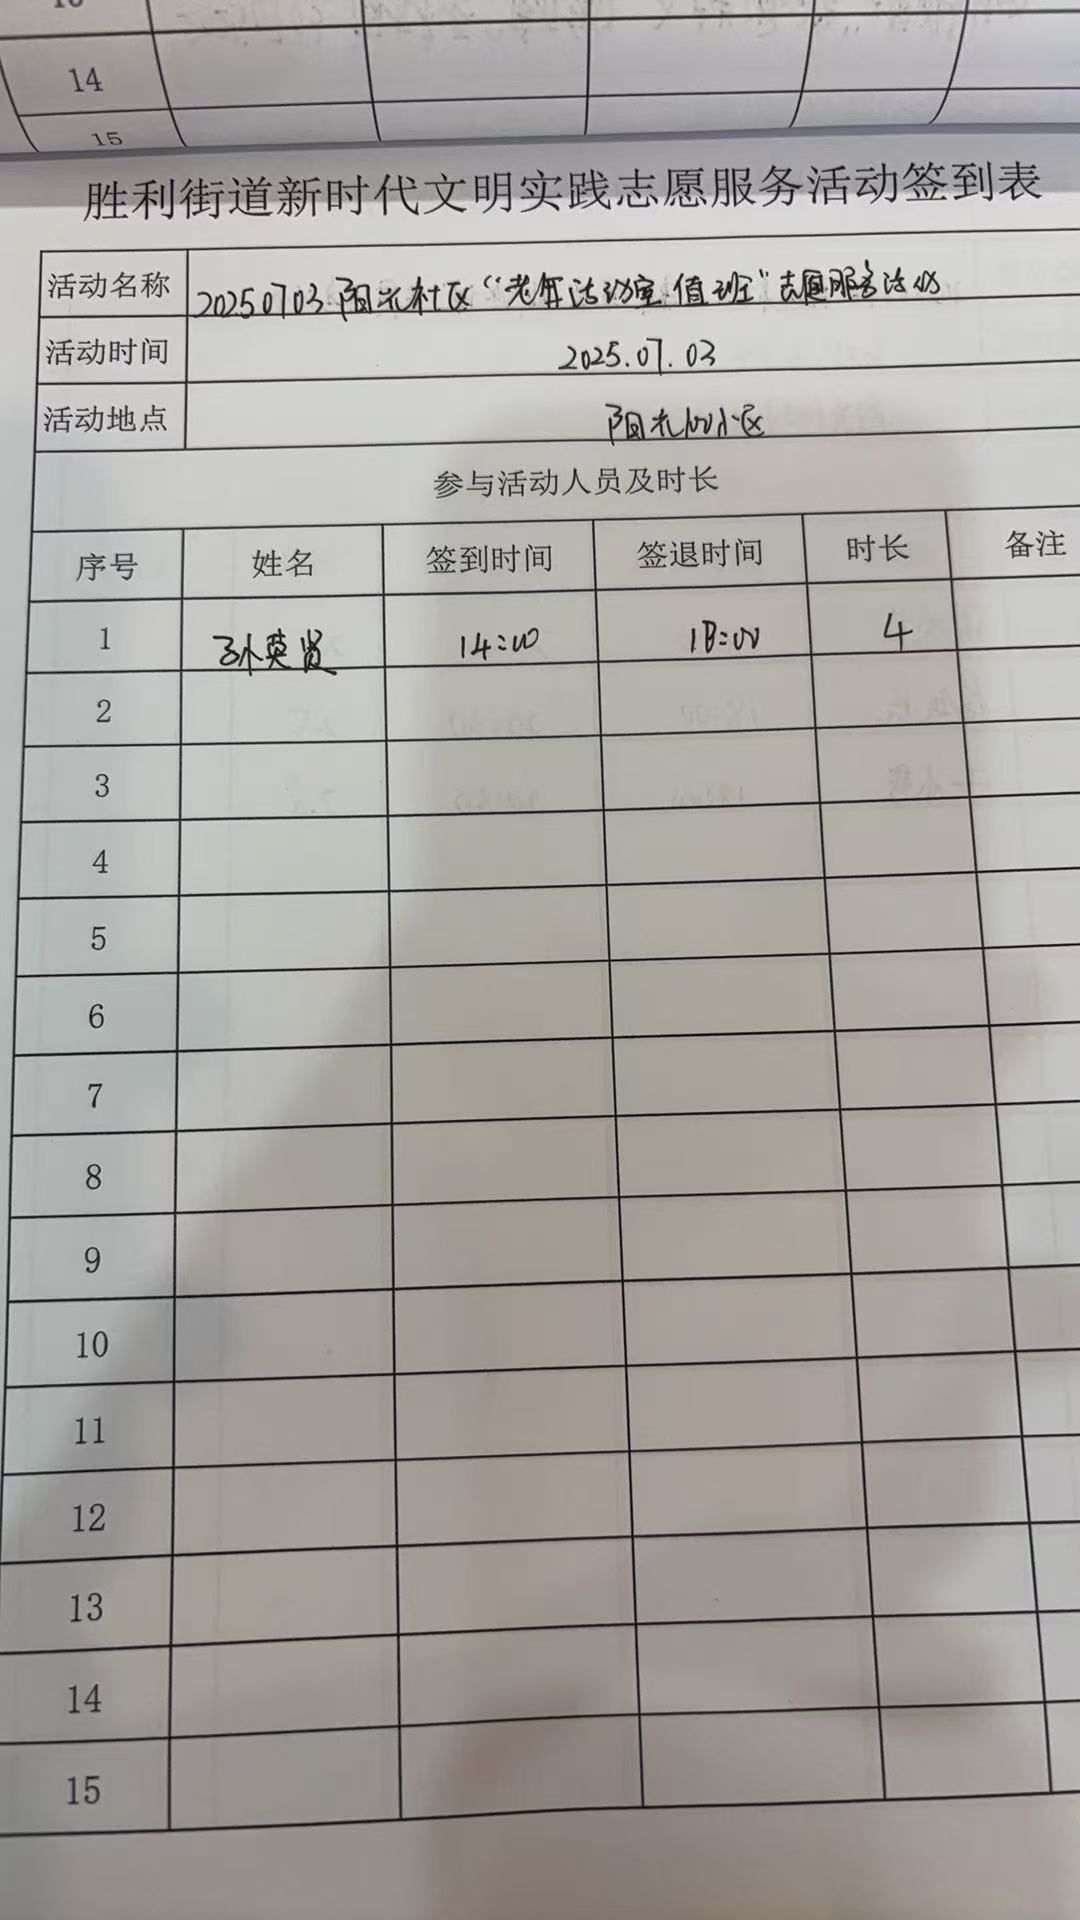 14
15
胜利街道新时代文明实践志愿服务活动签到表
活动名称 20250703阳光社区“老年活动室值班”志愿服务活动
活动时间 2025.07.03
活动地点 阳光100小区
参与活动人员及时长
序号 姓名 签到时间 签退时间 时长 备注
1 孙英贤 14:00 18:00 4
2
3
4
5
6
7
8
9
10
11
12
13
14
15